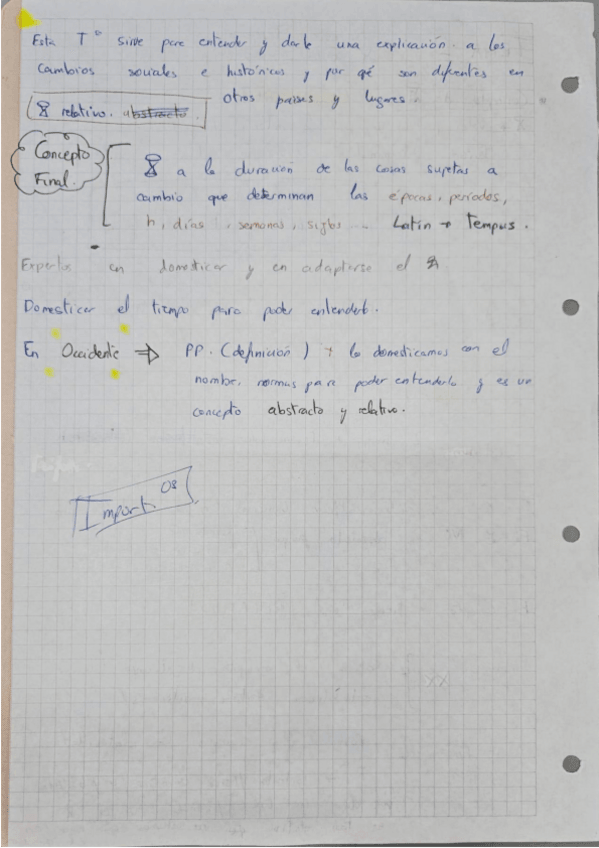 Esta Tº sirve para entender y darle una explicación a los
cambios sociales e históricos y por qué son diferentes en
otros países y lugares.
⌛ relativo. abstracto.
Concepto
Final.
⌛ a la duración de las cosas sujetas a
cambio que determinan las épocas, períodos,
h, días, semanas, siglos... Latín → Tempus.
Expertos en domesticar y en adaptarse el ⌛
Domesticar el tiempo para poder entenderlo.
En Occidente ⇒ PP. (definición) + lo domesticamos con el
nombre, normas para poder entenderlo y es un
concepto abstracto y relativo.
Import.